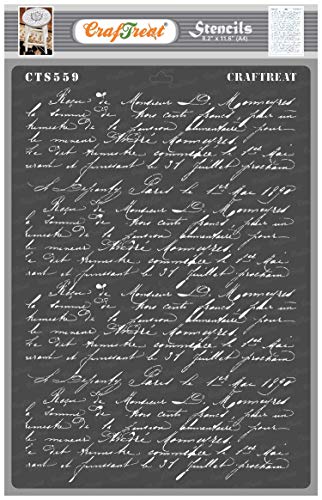 CrafTreat
Stencils
8.2" x 11.6" (A4)
CTS559
CRAFTREAT
Reçu de Monsieur D. Monmeyres
la somme de trois cents francs pour un
trimestre de la pension alimentaire pour
le mineur André Monmeyres
le dit trimestre commence le 1er Mai
courant et finissant le 31 juillet prochain
Paris le 1er Mai 1890
Reçu de Monsieur D. Monmeyres
la somme de trois cents francs pour un
trimestre de la pension alimentaire pour
le mineur André Monmeyres
le dit trimestre commence le 1er Mai
rant et finissant le 31 juillet prochain
Reçu de Monsieur D. Monmeyres
la somme de trois cents francs pour un
trimestre de la pension alimentaire pour
le mineur André Monmeyres
le dit trimestre commence le 1er Mai
rant et finissant le 31 juillet prochain
Paris le 1er Mai 1890
Reçu de Monsieur D. Monmeyres
la somme de trois cents francs pour un
trimestre de la pension alimentaire pour
le mineur André Monmeyres
le dit trimestre commence le 1er Mai
rant et finissant le 31 juillet prochain